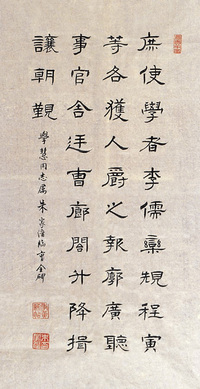 庶使學者李儒欒規程寅
等各獲人爵之報廓廣聽
事官舍廷曹廊閤升降揖
讓朝覲
學慧同志屬 朱家濂臨曹全碑